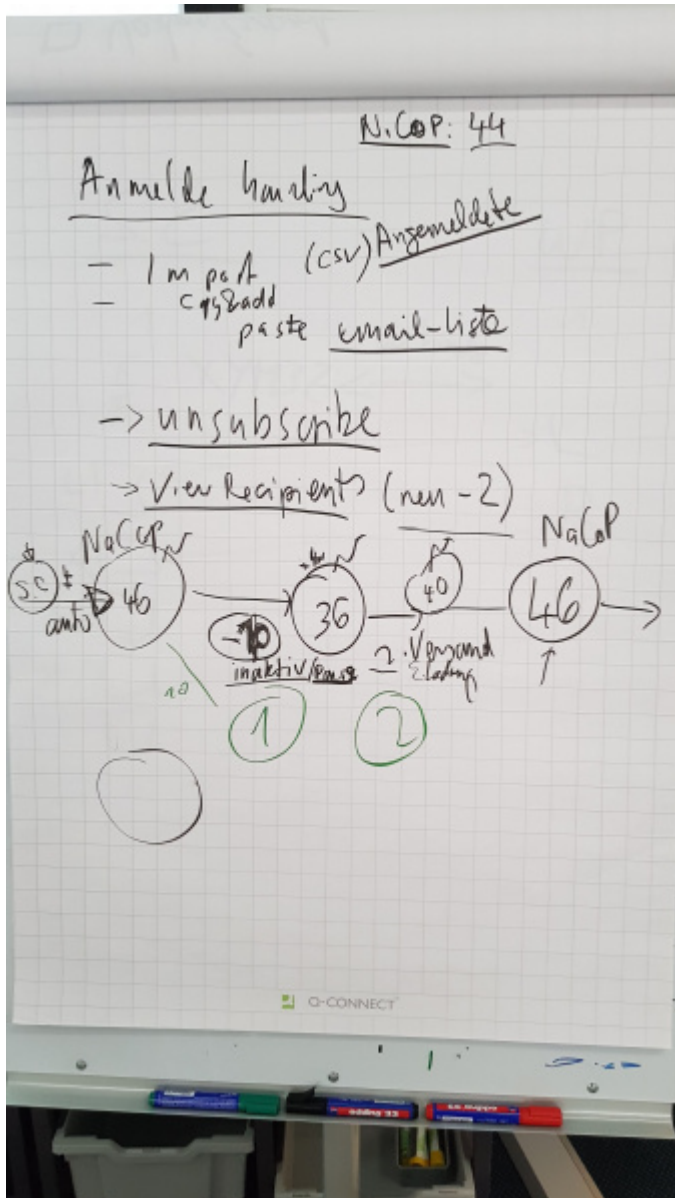 N.CoP: 44
Anmelde handling
- Import (CSV) Angemeldete
- copy&add
paste email-liste
-> unsubscribe
-> View Recipients (neu-2)
NaCoP N
S.C
auto
46
-10
inaktiv/Pause
36
N
40
2. Versand
NaCoP
46
10
1
2
Q-CONNECT